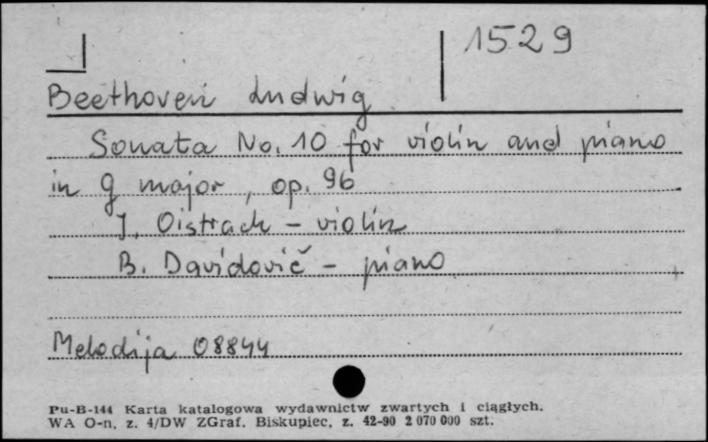 1529
Beethoven Ludwig
Sonata No. 10 for violin and piano
in g major, op. 96
I. Oistrach - violin
B. Davidovič - piano
Melodija 08844
Pu-B-144 Karta katalogowa wydawnictw zwartych i ciągłych.
WA O-n, z. 4/DW ZGraf. Biskupiec, z. 42-90 2 070 000 szt.